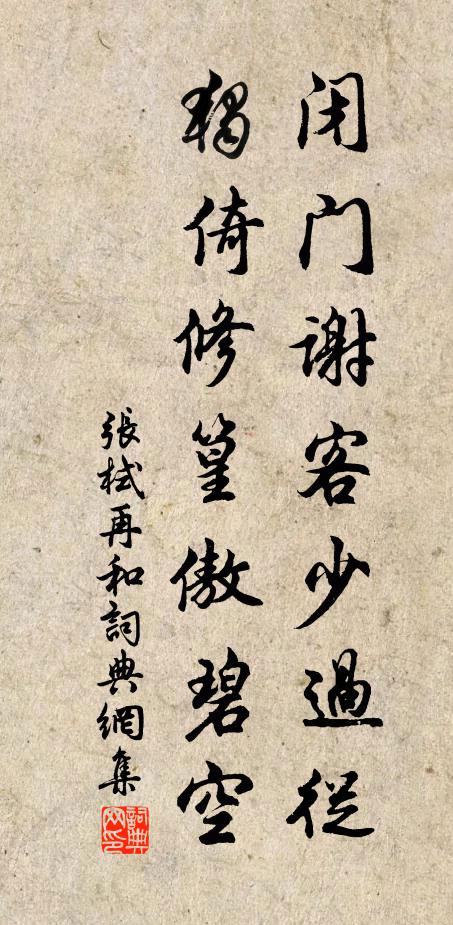 闭门謝客少過從
獨倚修篁傲碧空
張栻再和詞典網集
詞典网印